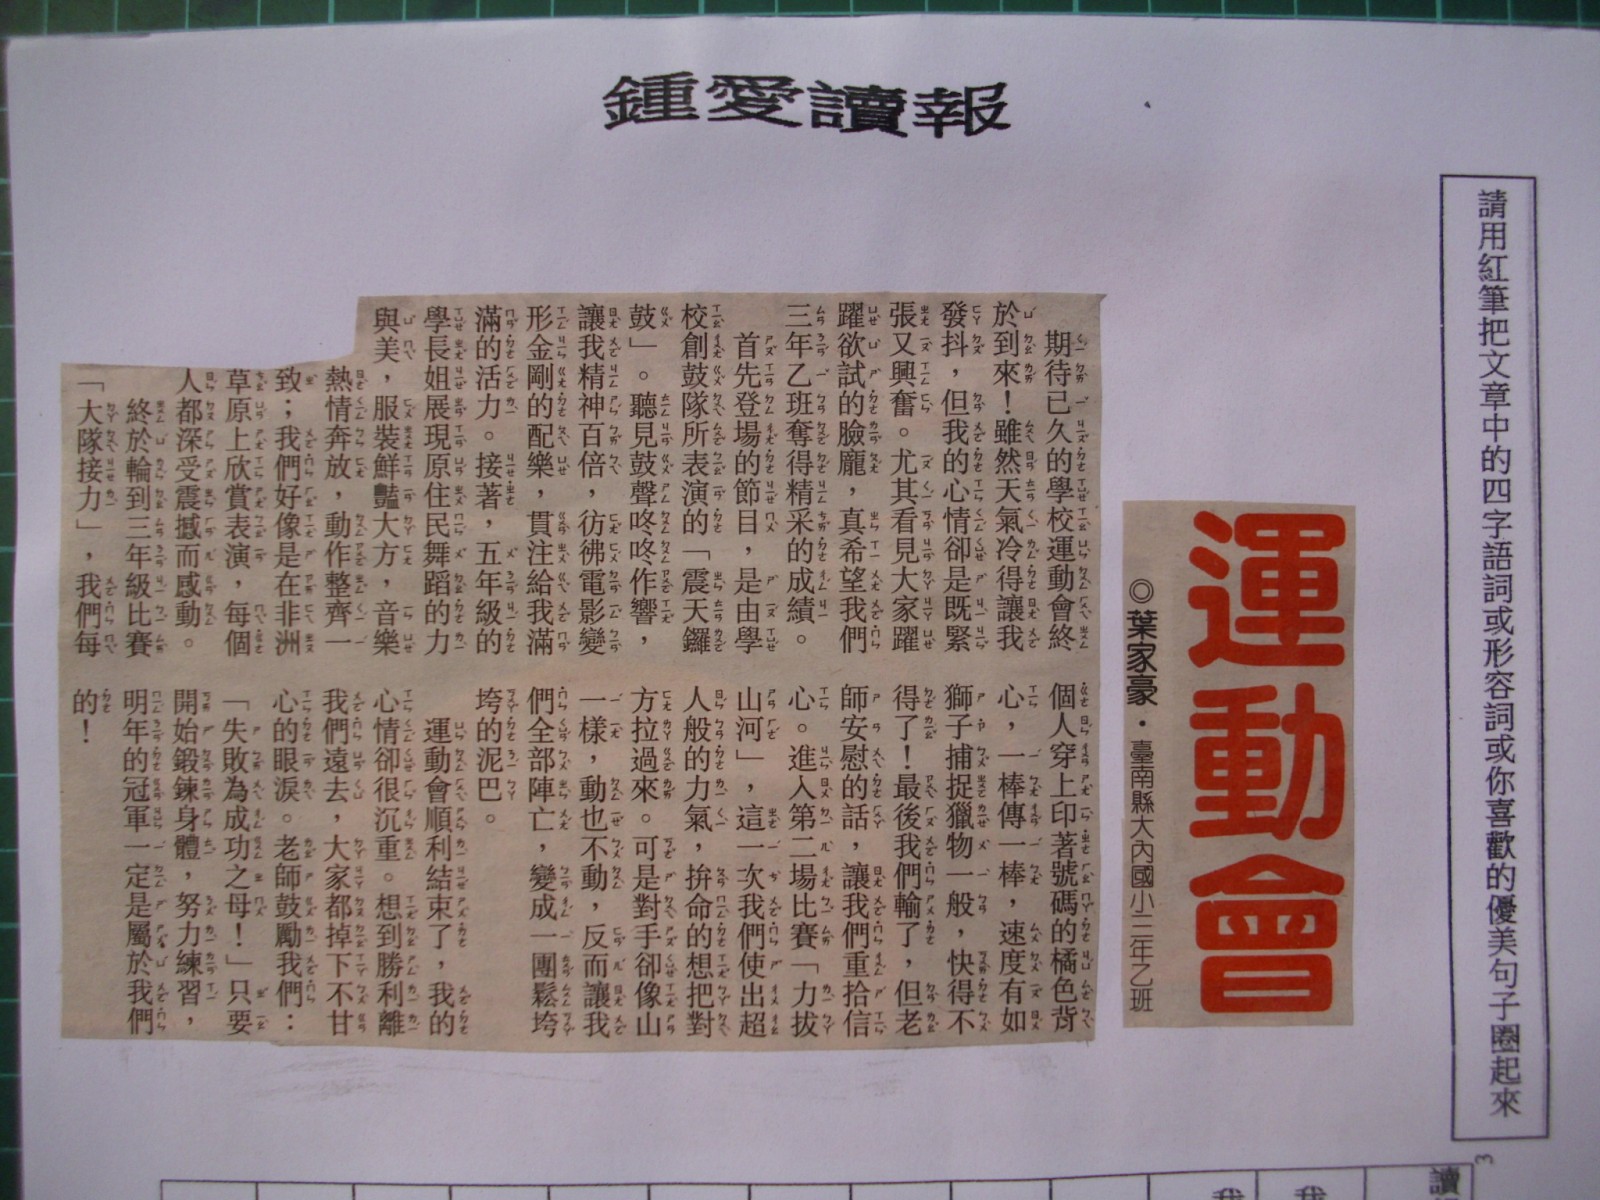 鍾愛讀報
請用紅筆把文章中的四字語詞或形容詞或你喜歡的優美句子圈起來
運動會
◎葉家豪・臺南縣大內國小三年乙班
期待已久的學校運動會終
於到來！雖然天氣冷得讓我
發抖，但我的心情卻是既緊
張又興奮。尤其看見大家躍
躍欲試的臉龐，真希望我們
三年乙班奪得精采的成績。
首先登場的節目，是由學
校創鼓隊所表演的「震天鑼
鼓」。聽見鼓聲咚咚作響，
讓我精神百倍，彷彿電影變
形金剛的配樂，貫注給我滿
滿的活力。接著，五年級的
學長姐展現原住民舞蹈的力
與美，服裝鮮豔大方，音樂
熱情奔放，動作整齊一
致；我們好像是在非洲
草原上欣賞表演，每個
人都深受震撼而感動。
終於輪到三年級比賽
「大隊接力」，我們每
個人穿上印著號碼的橘色背
心，一棒傳一棒，速度有如
獅子捕捉獵物一般，快得不
得了！最後我們輸了，但老
師安慰的話，讓我們重拾信
心。進入第二場比賽「力拔
山河」，這一次我們使出超
人般的力氣，拚命的想把對
方拉過來。可是對手卻像山
一樣，動也不動，反而讓我
們全部陣亡，變成一團鬆垮
垮的泥巴。
運動會順利結束了，我的
心情卻很沉重。想到勝利離
我們遠去，大家都掉下不甘
心的眼淚。老師鼓勵我們：
「失敗為成功之母！」只要
開始鍛鍊身體，努力練習，
明年的冠軍一定是屬於我們
的！
3
讀
我
我